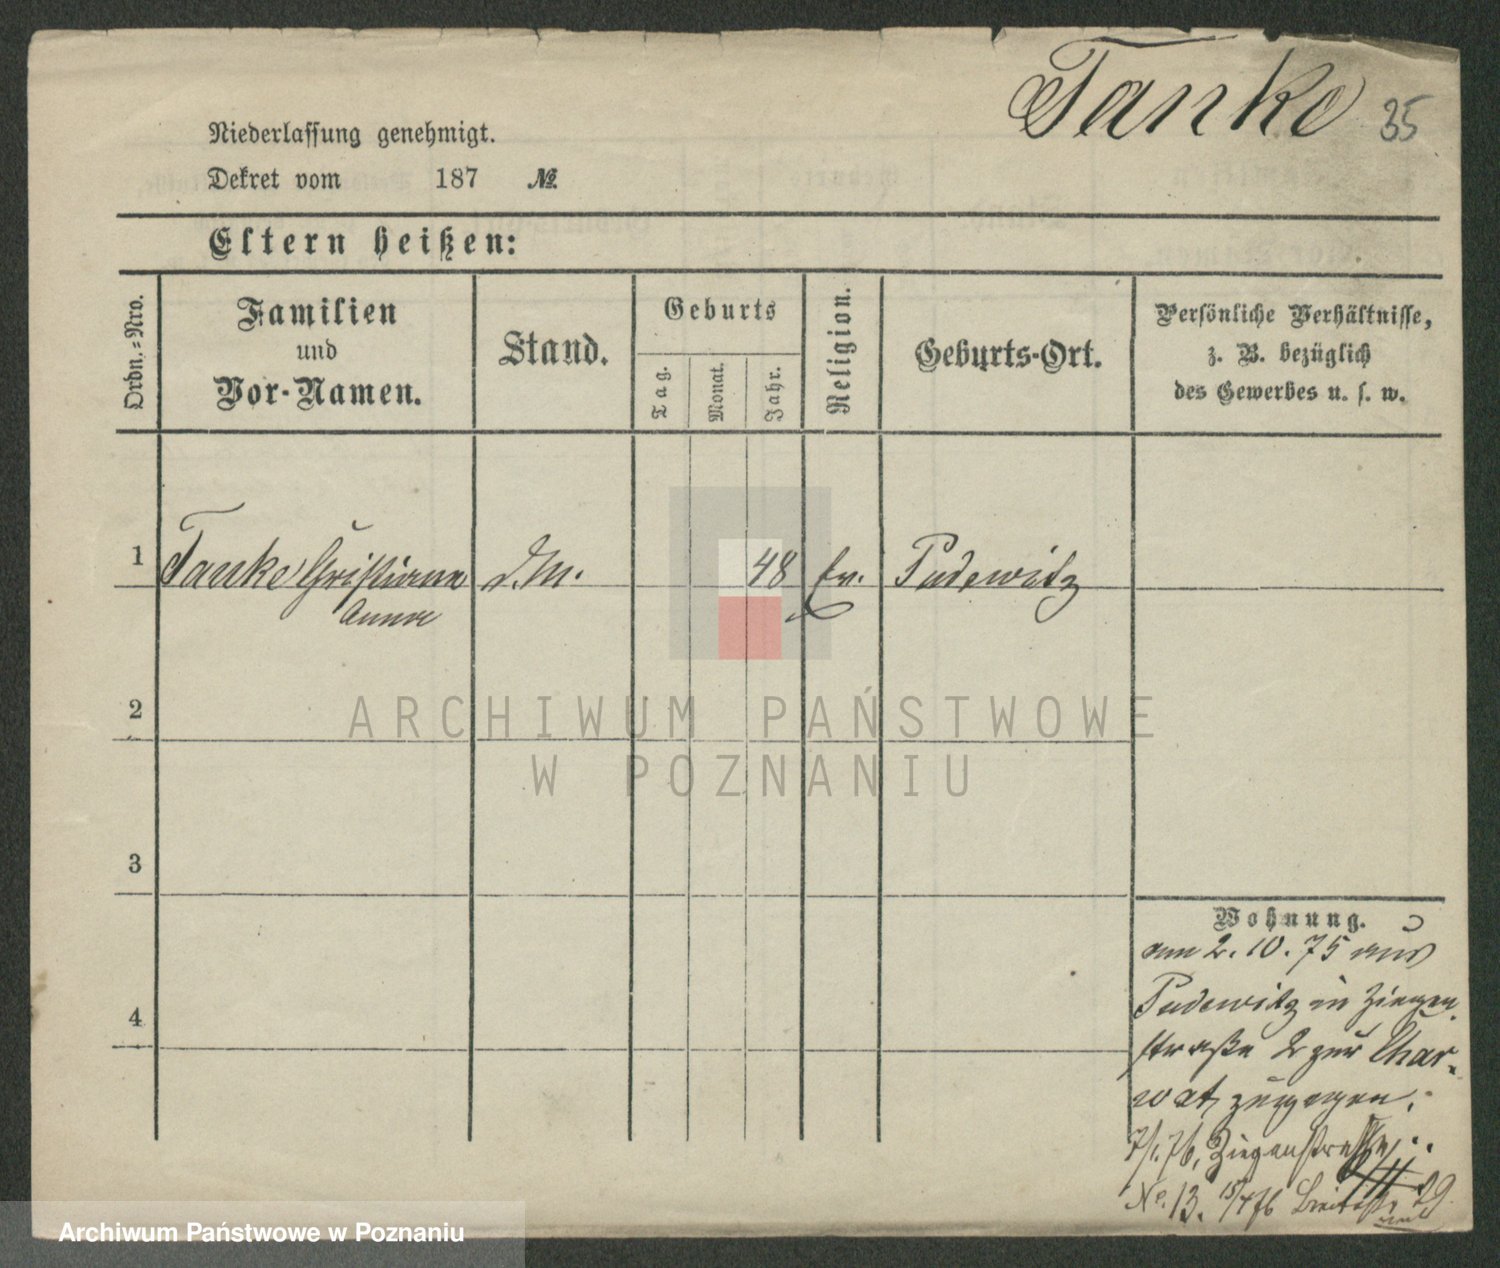 Tanke 35
Niederlassung genehmigt.
Dekret vom 187 №
Eltern heißen:
Ordn.-Nro.
Familien
und
Vor-Namen.
Stand.
Geburts
Tag.
Monat.
Jahr.
Religion.
Geburts-Ort.
Persönliche Verhältnisse,
z. B. bezüglich
des Gewerbes u. s. w.
1 Tanke Cristiana d. M. 48 Ev. Pudewitz
Anna
2
3
4
Wohnung.
am 2. 10. 75 aus
Pudewitz in Ziegen
straße 2 zur Char-
wat zugezogen.
7/1. 76, Ziegenstraße
No. 13. 15/4 76 Breitestr 29
ARCHIWUM PAŃSTWOWE
W POZNANIU
Archiwum Państwowe w Poznaniu